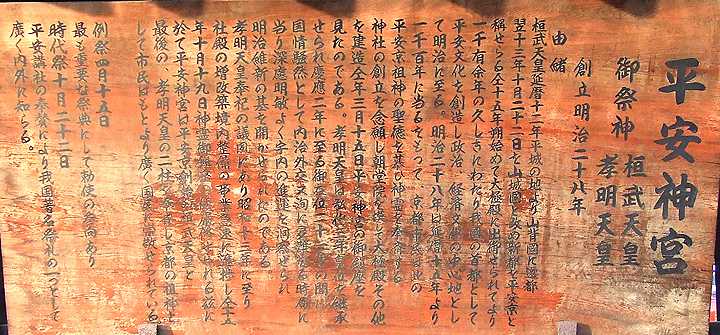 平安神宮
御祭神 桓武天皇
孝明天皇
創立明治二十八年
由緒
桓武天皇延暦十二年平城の地より山背国に遷都
翌十三年十月二十二日を山城国と安の新都を平安京と
称せらる全十五年翔始めて大極殿に出御せられてより
一千有余年の久しきにわたり我国の首都として
平安文化を創造し政治、経済文教の中心地とし
て明治に至る。明治二十八年は延暦十五年より
一千百年に当るをもって、京都市民は
平安京祖神の聖徳を慕ひ神霊を奉斎する
神社の創立を念願し朝堂院を模して大極殿その他
を建造全年三月十五日平安神宮の御鎮座を
見たのである。孝明天皇は弘化三年皇位を継承
せられ慶應二年に至る御在位二十一年の間
国情騒然として内治外交に多難なる時局に
当り深慮明敏よく宇内の進運を洞察せられ
明治維新の基を開かせられたのである。
孝明天皇奉祀の議閣にあり昭和十三年に至り
社殿の増改築境内整備の事業を遂に完成し全十五
年十月十九日神霊御鎮座せられる茲に
於て平安神宮は平安京創始の桓武天皇と
最後の、孝明天皇の二柱を奉斎し京都の祖神と
して市民はもとより廣く国民に崇敬せられている
例祭四月十五日
最も重要な祭典にして勅使の参向あり
時代祭十月二十二日
平安講社の奉賛により我国著名祭礼の一つとして
廣く内外に知らる。